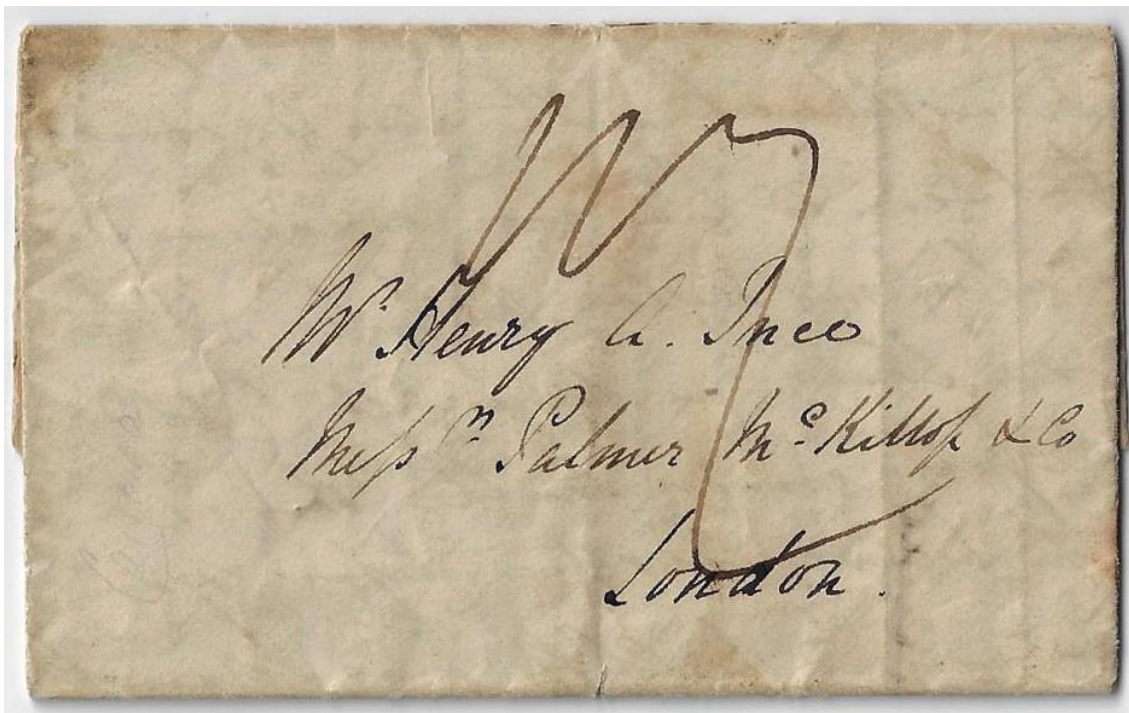 Mr. Henry A.
Messrs Palmer McKillop & Co
London.